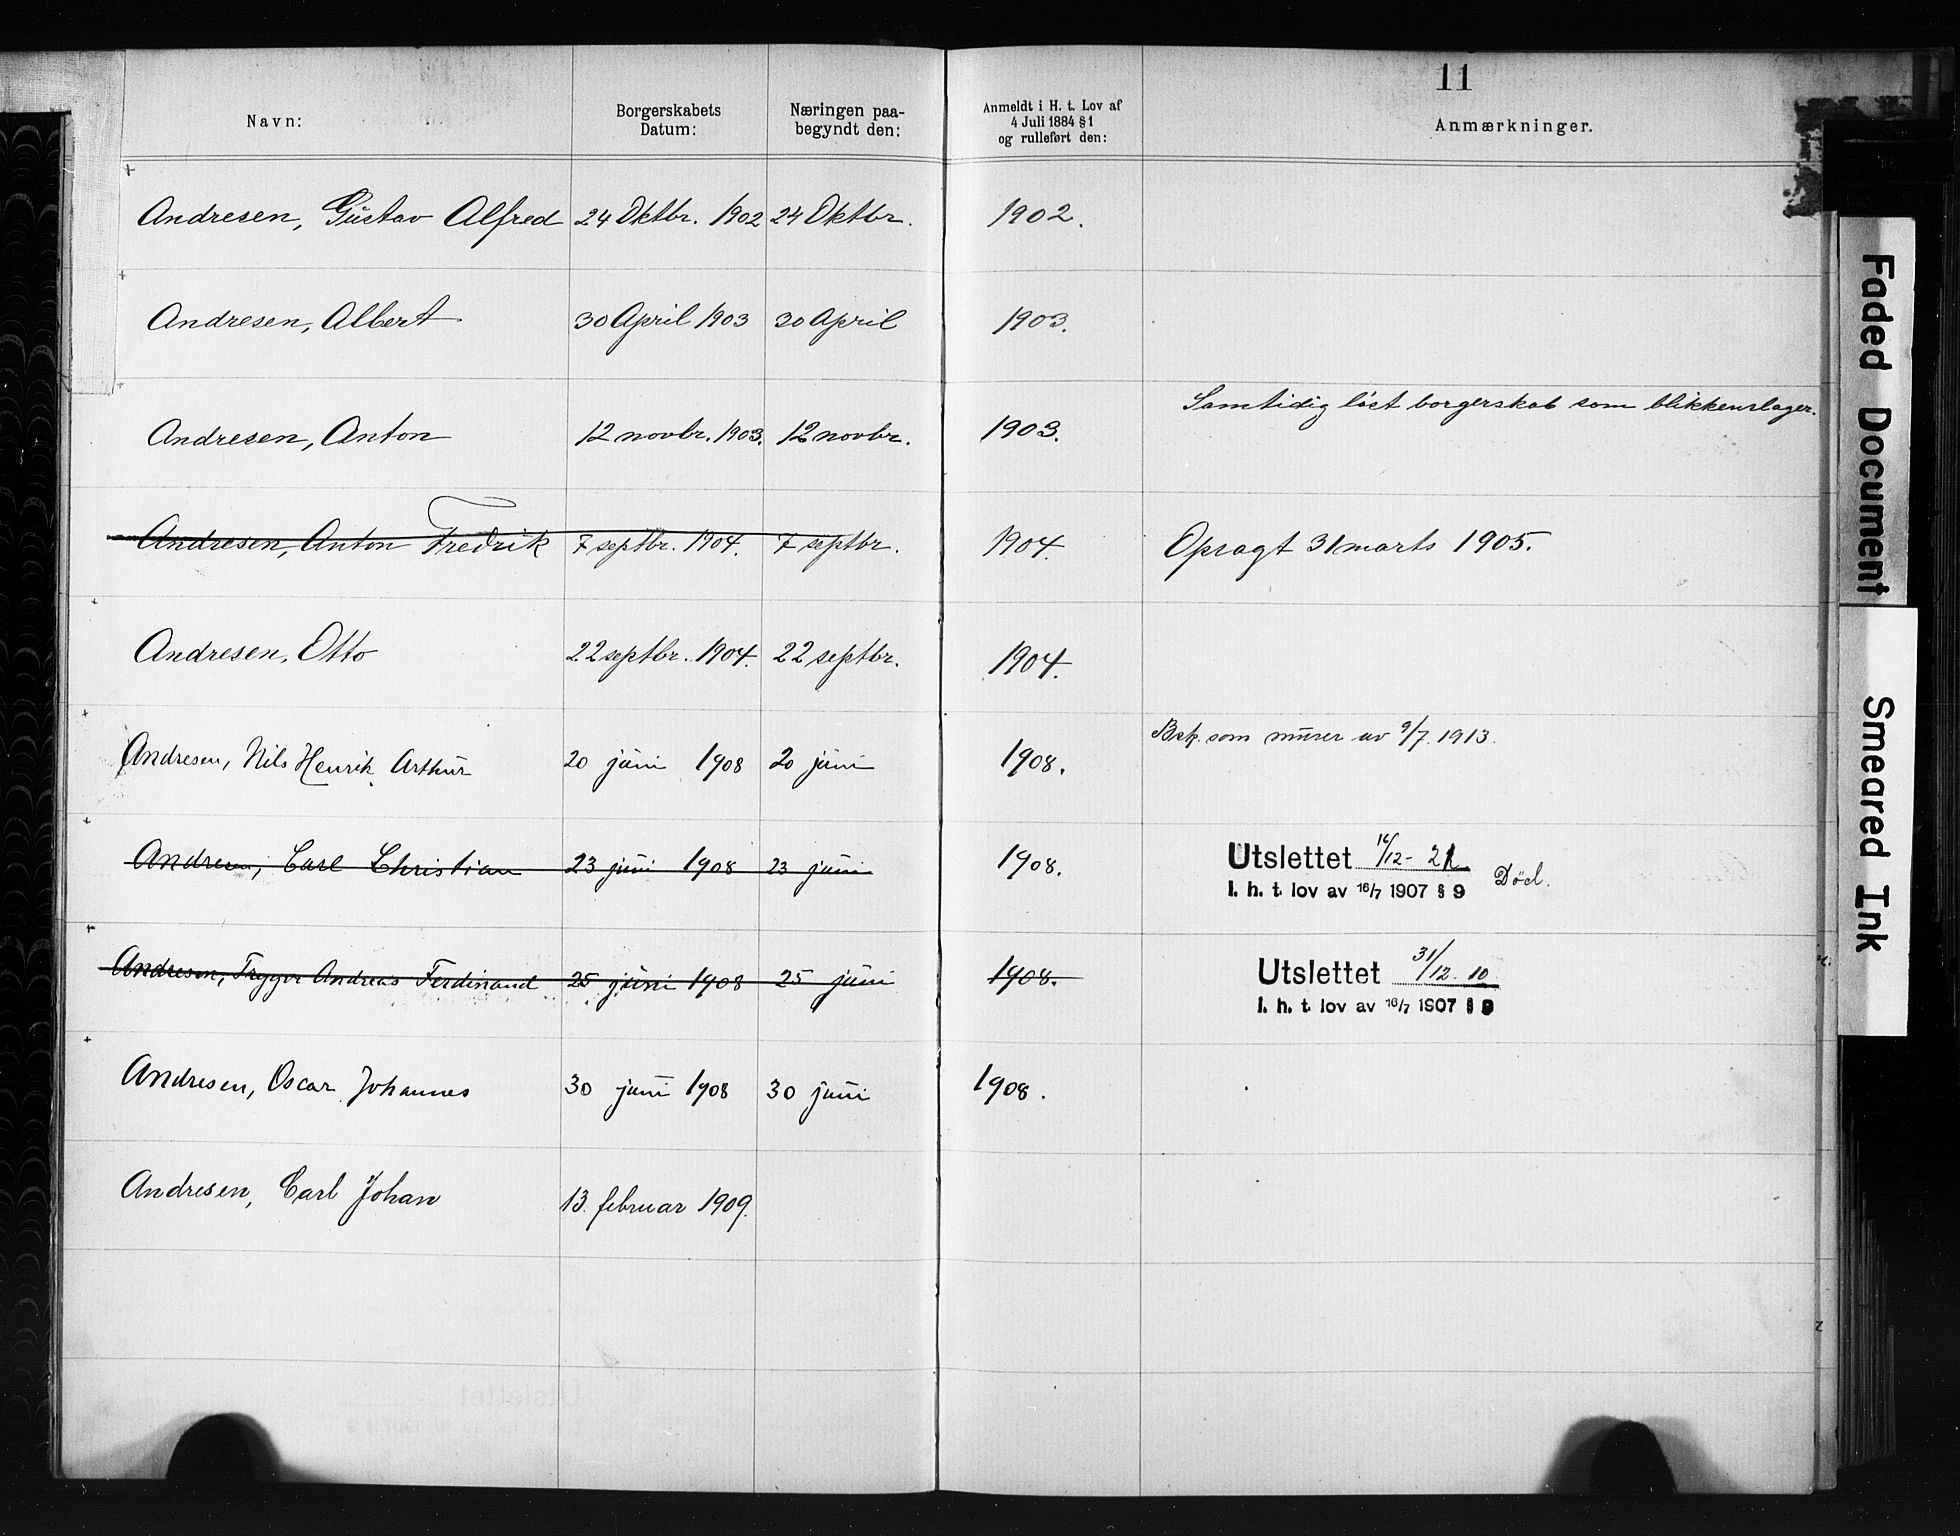 11
Navn: Borgerskabets Datum: Næringen paabegyndt den: Anmeldt i H. t. Lov af 4 Juli 1884 § 1 og rulleført den: Anmærkninger.
Andresen, Gustav Alfred 24 Oktbr. 1902 24 Oktbr. 1902.
Andresen, Albert 30 April 1903 30 April 1903.
Andresen, Anton 12 novbr. 1903. 12 novbr. 1903. Samtidig löst borgerskab som blikkenslager.
Andresen, Anton Fredrik 7 septbr. 1904. 7 septbr. 1904. Opsagt 31 marts 1905.
Andresen, Otto 22 septbr. 1904. 22 septbr. 1904.
Andresen, Nils Henrik Arthur 20 juni 1908 20 juni 1908. Bsk. som murer av 9/7. 1913.
Andresen, Carl Christian 23 juni 1908 23 juni 1908. Utslettet 16/12- 21 Död.
I. h. t. lov av 16/7 1907 § 9
Andresen, Trygve Andreas Ferdinand 25 juni 1908 25 juni 1908. Utslettet 31/12. 10
I. h. t. lov av 16/7 1907 § 9
Andresen, Oscar Johannes 30 juni 1908 30 juni 1908.
Andresen, Carl Johan 13. februar 1909.
Faded Document
Smeared Ink